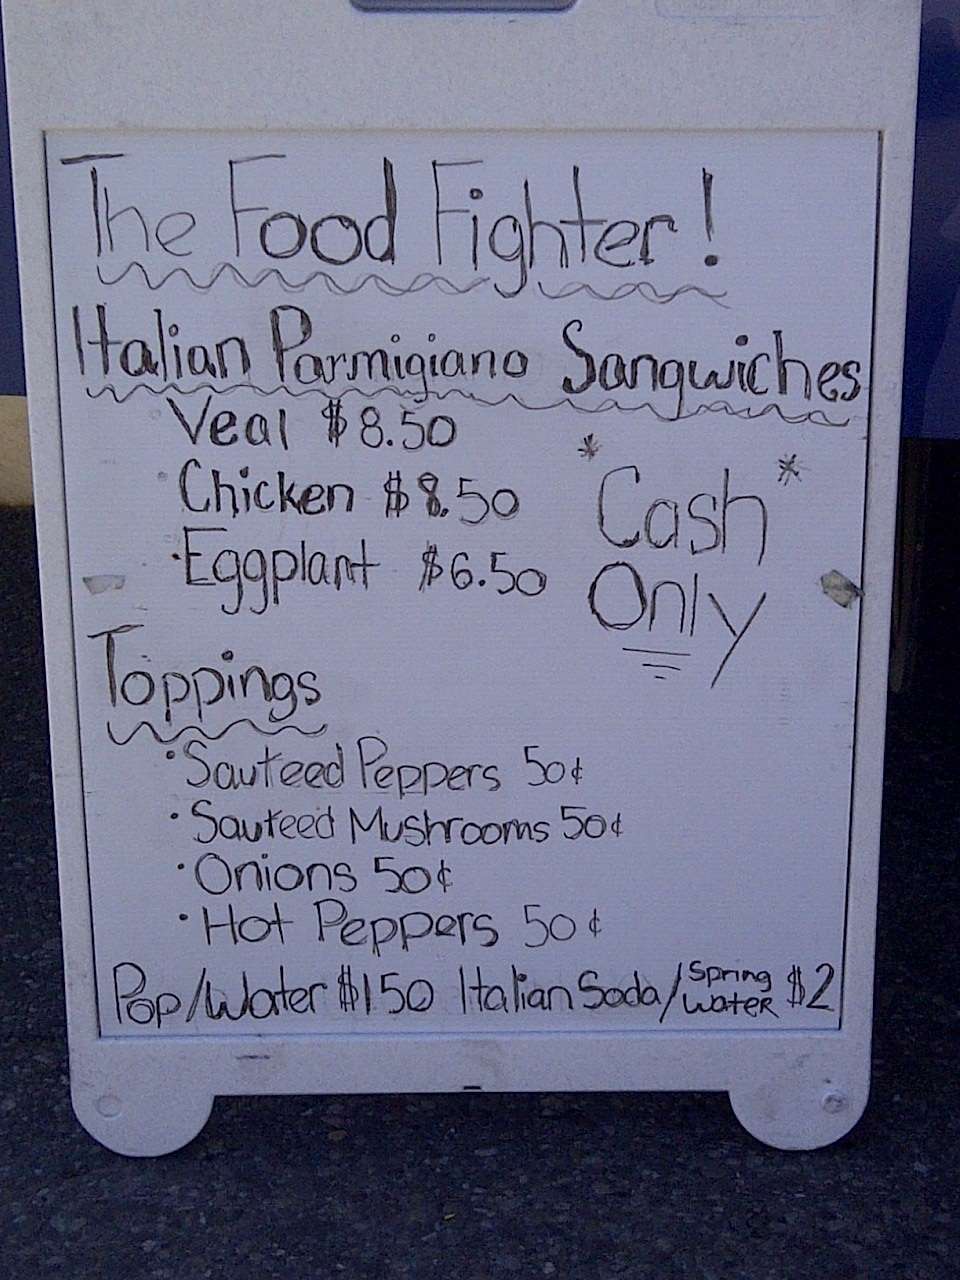 The Food Fighter!
Italian Parmigiano Sangwiches
Veal $8.50
·Chicken $8.50
·Eggplant $6.50
*Cash*
Only
Toppings
·Sauteed Peppers 50¢
·Sauteed Mushrooms 50¢
·Onions 50¢
·Hot Peppers 50¢
Pop/Water $1.50 Italian Soda/Spring Water $2